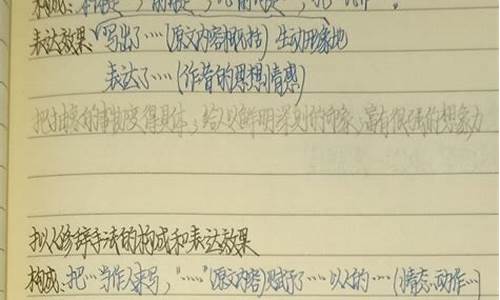 构成：本体是"…"，喻体是"…"，比喻词是"…"，把"…"比作"…"。
表达效果：写出了……(原文内容概括) 生动形象地
表达了……(作者的思想情感)
把抽象的事物变得具体，给人以鲜明深刻的印象，富有很强的想象力
拟人修辞手法的构成和表达效果
构成：把…当作人来写，"……"(原文内容)赋予了……以人的……(情态、动作…)